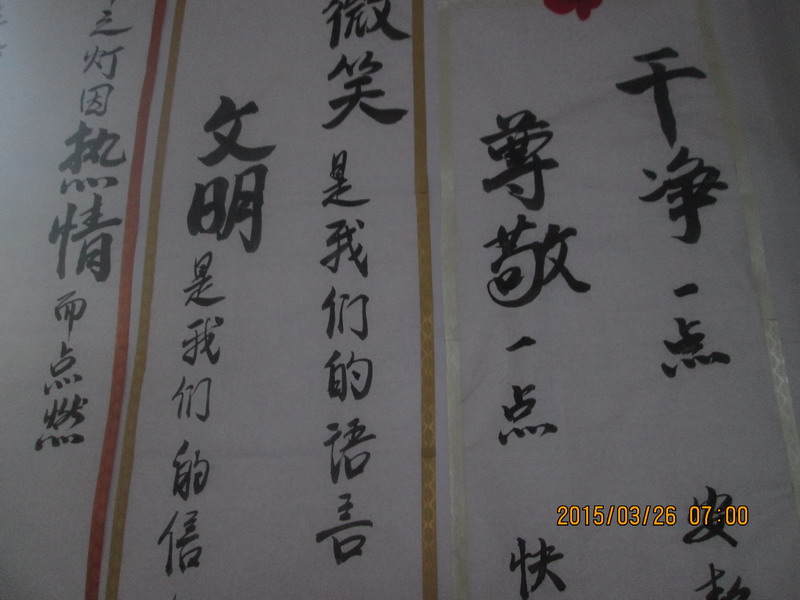 干净一点 安
尊敬一点 快
微笑是我们的语言
文明是我们的信
之灯因热情而点燃
2015/03/26 07:00